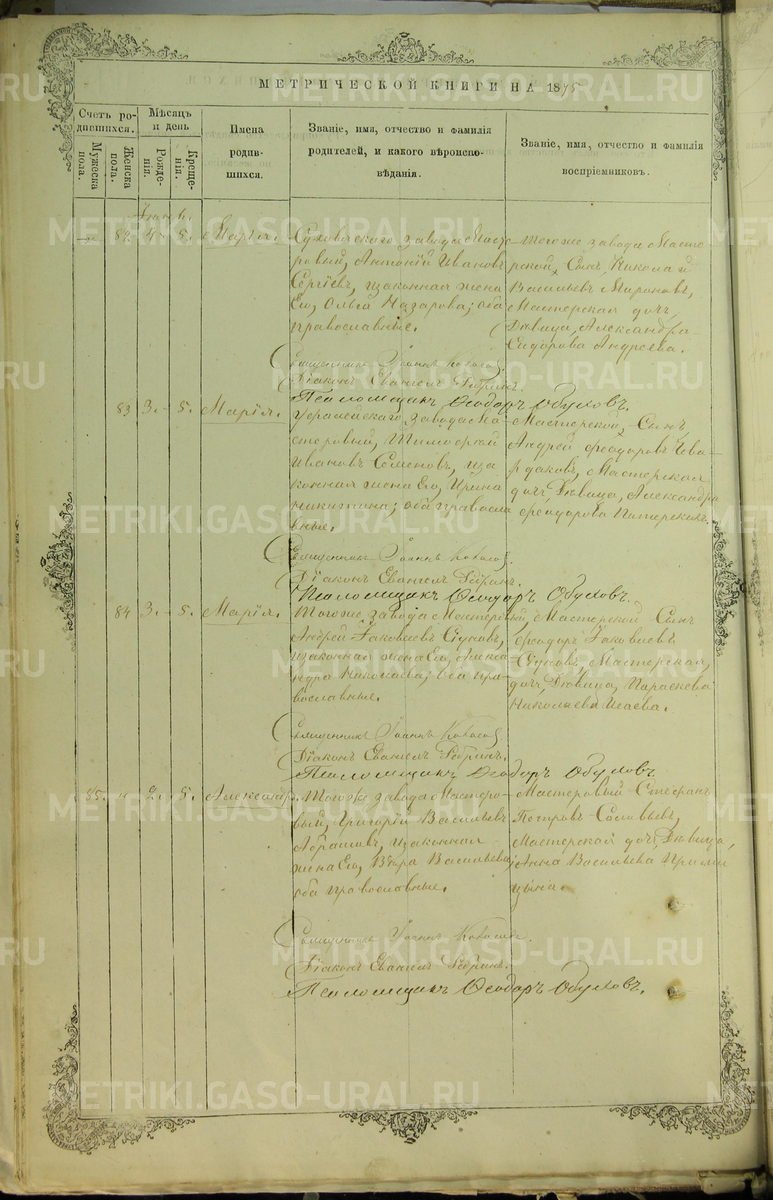 МЕТРИЧЕСКОЙ КНИГИ НА 1875
Счетъ родившихся.
Мужеска пола.
Женска пола.
Мѣсяцъ и день
Рожденія.
Крещенія.
Имена родившихся.
Званіе, имя, отчество и фамилія родителей, и какого вѣроисповѣданія.
Званіе, имя, отчество и фамилія воспріемниковъ.
82. 4. 5. Марія.
завода Масте-
ровый, Антоній Ивановъ
Сергѣевъ, и законная жена
Его, Ольга Назарова; оба
православные.
Тогоже завода Масте-
рской, Сынъ, Николай
Васильевъ Мироновъ,
Мастерская дочь,
Дѣвица, Александра
Сидорова Андреева.
Священникъ Іоаннъ
Діаконъ Евангелъ
Псаломщикъ Ѳеодоръ Обуховъ.
83 3. 5. Марія.
завода Ма-
стеровый, Тимоѳей
Ивановъ Семеновъ, и за-
конная жена Его, Ирина
Никитина; оба правосла-
вные.
Мастерской, Сынъ
Андрей Ѳеодоровъ
Мастерская
дочь, Дѣвица, Александра
Ѳеодорова Питерскихъ.
Священникъ Іоаннъ
Діаконъ Евангелъ
Псаломщикъ Ѳеодоръ Обуховъ.
84 3. 5. Марія.
Тогоже завода Мастеровый,
Андрей Іаковлевъ
и законная жена Его, Алекса-
ндра Николаева; оба пра-
вославные.
Мастерской Сынъ
Ѳеодоръ Іаковлевъ
Мастерская
дочь, Дѣвица, Параскева
Николаева Исаева.
Священникъ Іоаннъ
Діаконъ Евангелъ
Псаломщикъ Ѳеодоръ Обуховъ.
85. " 2. 5. Александръ.
Тогоже завода Мастеро-
вый, Григорій Васильевъ
Абрашевъ, и законная
жена Его, Вѣра Васильева
оба православные.
Мастеровый Стефанъ
Петровъ Соловьевъ,
Мастерской дочь, Дѣвица,
Анна Васильева
Священникъ Іоаннъ
Діаконъ Евангелъ
Псаломщикъ Ѳеодоръ Обуховъ.
METRIKI.GASO-URAL.RU